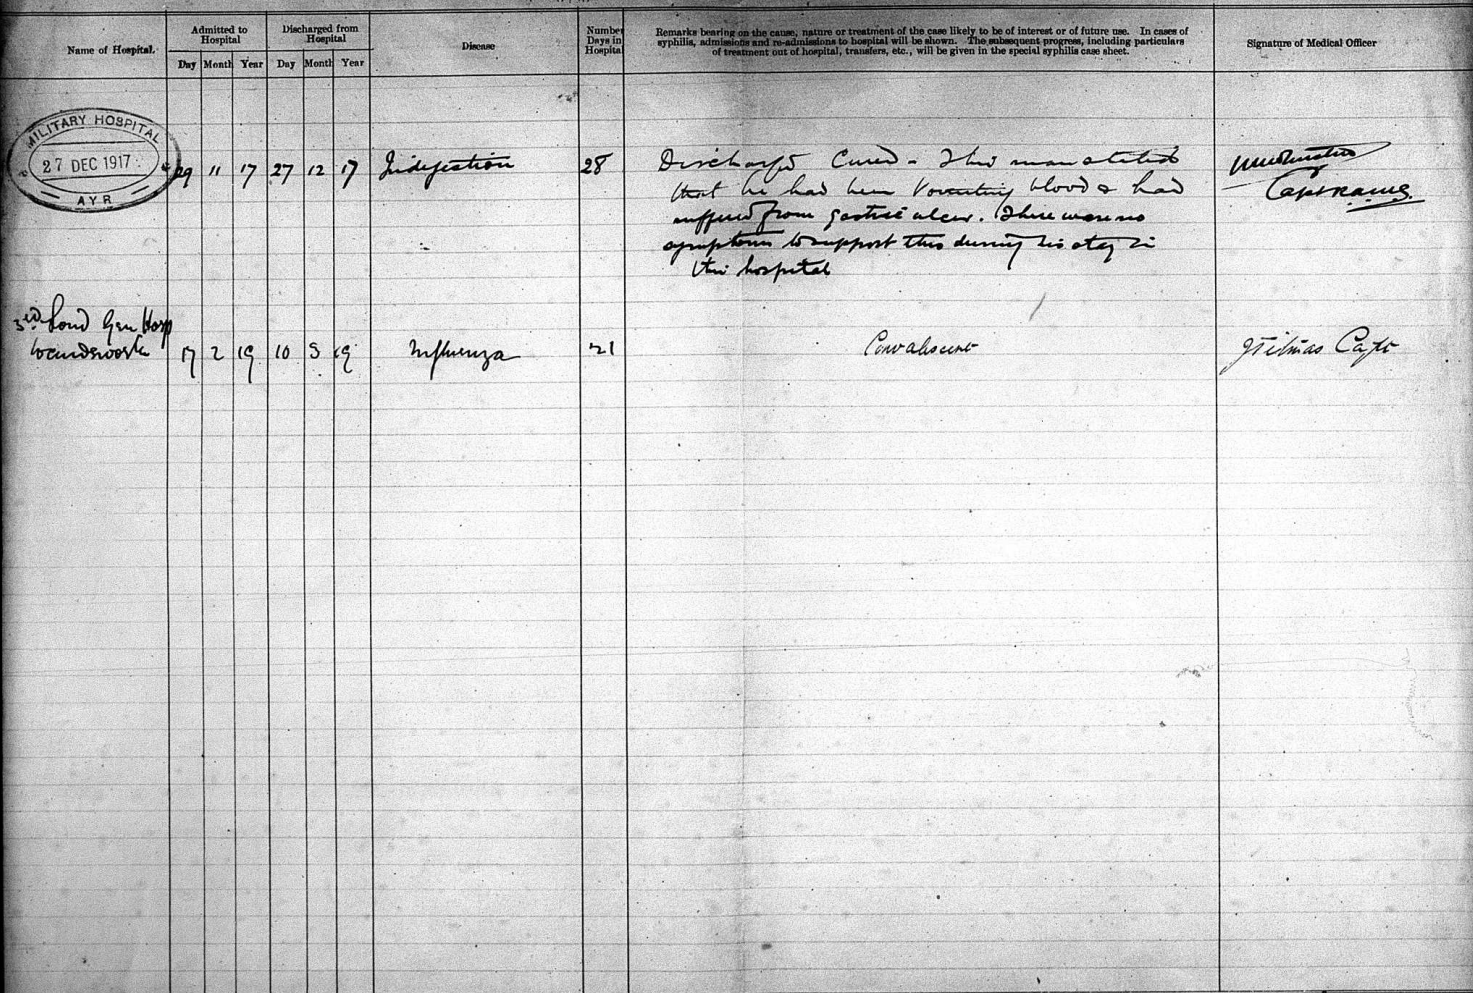 Name of Hospital.
Admitted to
Hospital
Day Month Year
Discharged from
Hospital
Day Month Year
Disease
Number
Days in
Hospital
Remarks bearing on the cause, nature or treatment of the case likely to be of interest or of future use. In cases of
syphilis, admissions and re-admissions to hospital will be shown. The subsequent progress, including particulars
of treatment out of hospital, transfers, etc., will be given in the special syphilis case sheet.
Signature of Medical Officer
MILITARY HOSPITAL
27 DEC 1917
AYR
29 11 17 27 12 17 Indigestion 28
Discharged Cured - This man stated
that he had been vomiting blood & had
suffered from gastric ulcer. There were no
symptoms to support this during his stay in
this hospital
Capt RAMC
3rd Lond Gen Hosp
Wandsworth 17 2 19 10 3 19 Influenza 21 Convalescent Capt